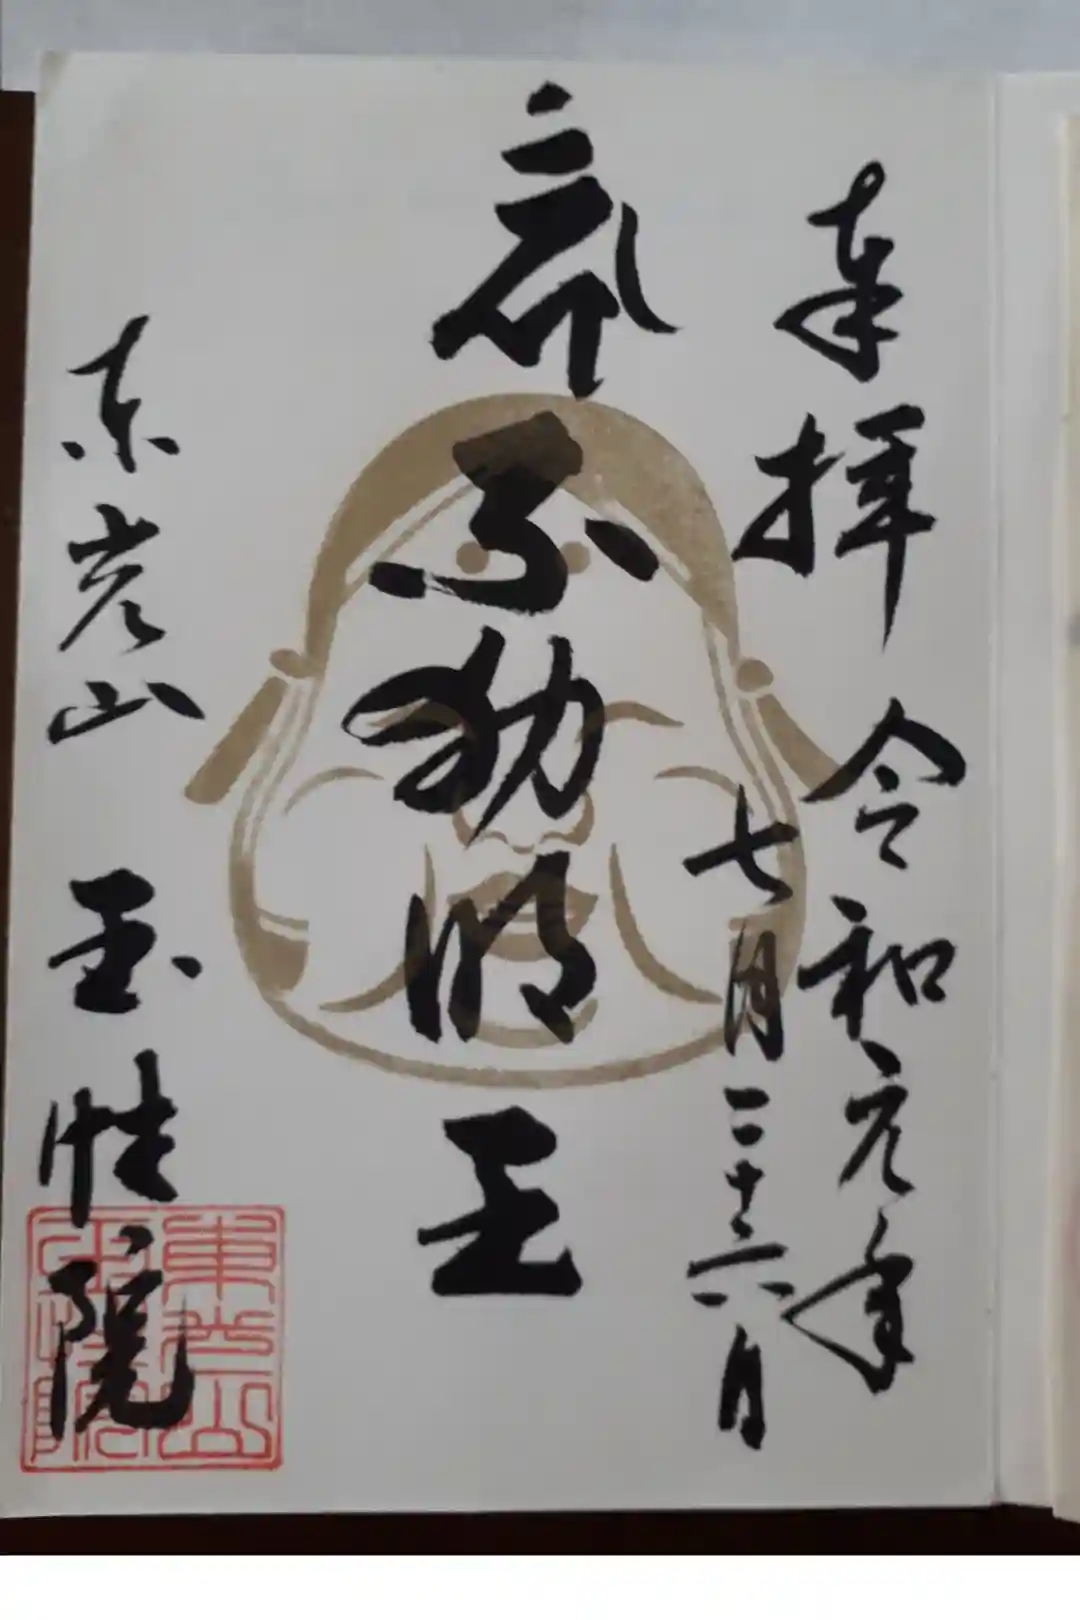 奉拝 令和元年
七月二十六日
不動明王
東光山 玉性院
東光山
玉性院